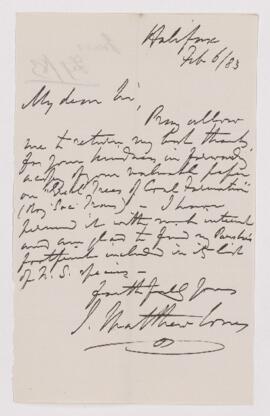 Halifax
Feb 6/83
My dear Sir,
Pray allow
me to return my best thanks
for your kindness in forwarding
a copy of your valuable paper
on "Trees of Coal Formation"
(Roy. Soc. Trans) – I have
perused it with much interest
and am glad to find my
footprint included in list
of N.S. species –
faithfully yours
J. Matthew Jones